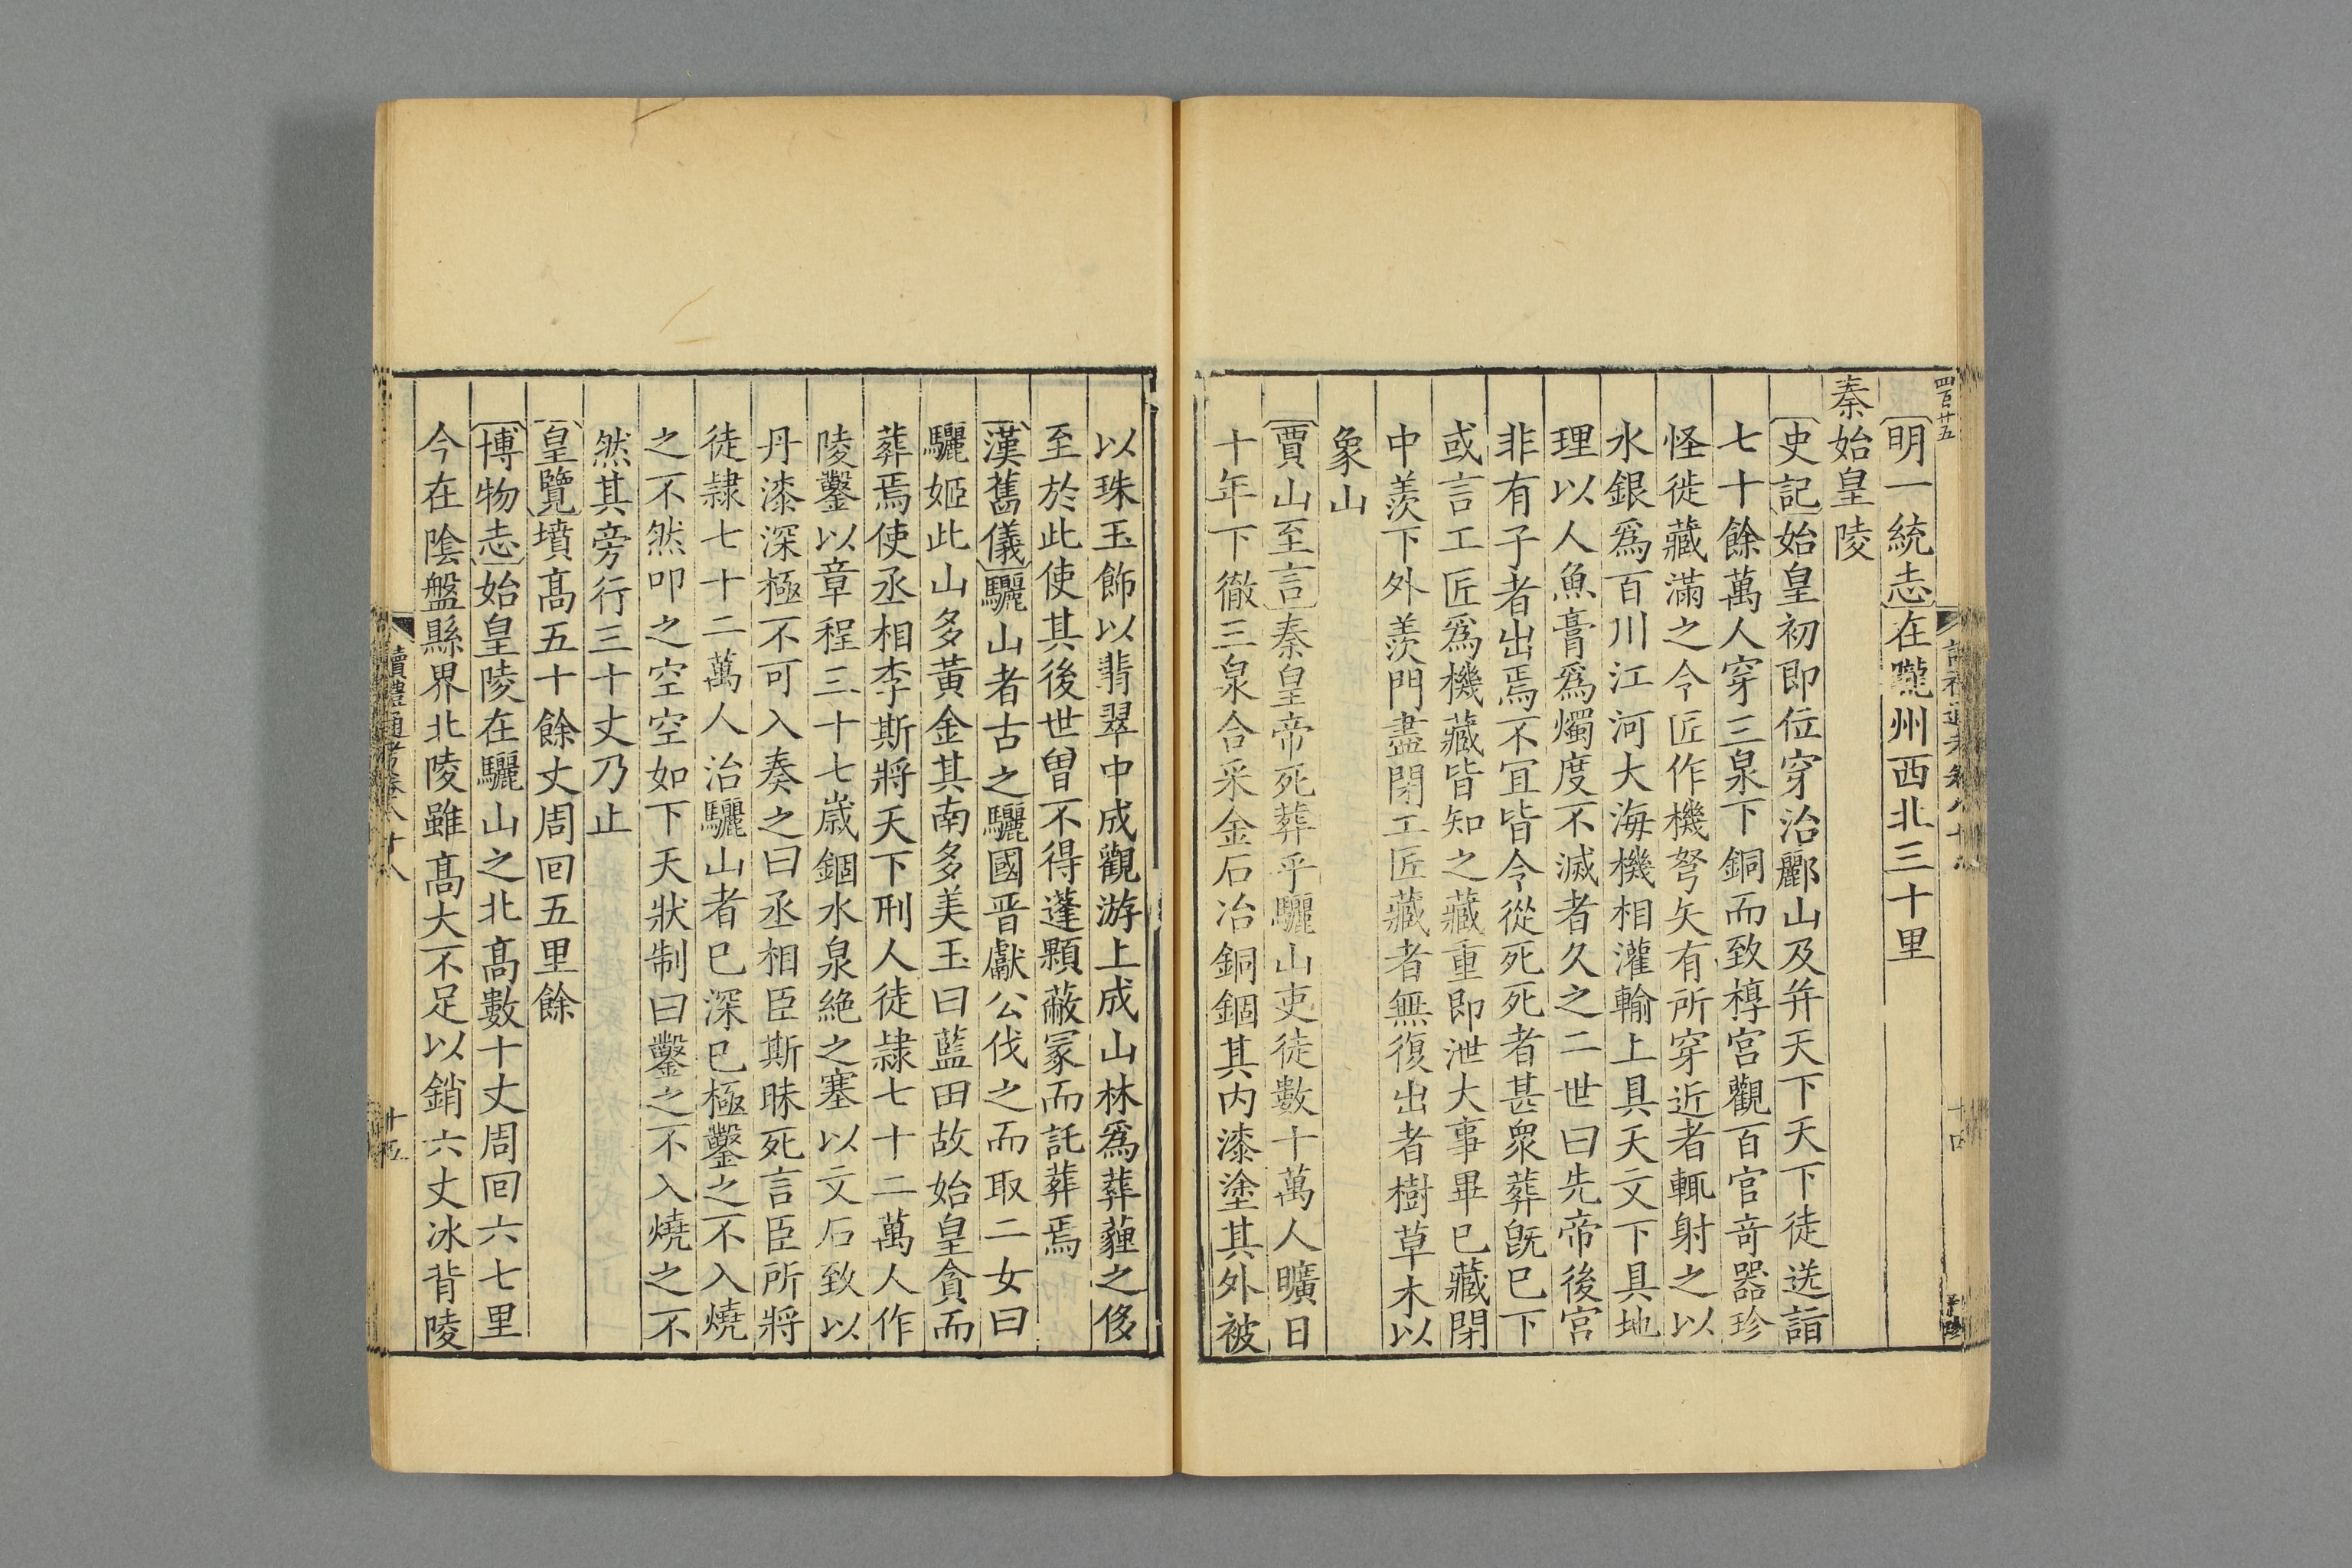 四百廿五
明一統志在隴州西北三十里
秦始皇陵
史記始皇初即位穿治酈山及并天下天下徒送詣
七十餘萬人穿三泉下銅而致椁宮觀百官奇器珍
怪徙藏滿之令匠作機弩矢有所穿近者輒射之以
水銀爲百川江河大海機相灌輸上具天文下具地
理以人魚膏爲燭度不滅者久之二世曰先帝後宮
非有子者出焉不宜皆令從死死者甚衆葬旣已下
或言工匠爲機藏皆知之藏重即泄大事畢已藏閉
中羨下外羨門盡閉工匠藏者無復出者樹草木以
象山
賈山至言秦皇帝死葬乎驪山吏徒數十萬人曠日
十年下徹三泉合采金石冶銅錮其内漆塗其外被
以珠玉飾以翡翠中成觀游上成山林爲葬薶之侈
至於此使其後世曾不得蓬顆蔽冡而託葬焉
漢舊儀驪山者古之驪國晋獻公伐之而取二女曰
驪姬此山多黃金其南多美玉曰藍田故始皇貪而
葬焉使丞相李斯將天下刑人徒隷七十二萬人作
陵鑿以章程三十七歲錮水泉絶之塞以文石致以
丹漆深極不可入奏之曰丞相臣斯昧死言臣所將
徒隷七十二萬人治驪山者已深已極鑿之不入燒
之不然叩之空空如下天狀制曰鑿之不入燒之不
然其旁行三十丈乃止
皇覽墳髙五十餘丈周回五里餘
博物志始皇陵在驪山之北髙數十丈周回六七里
今在陰盤縣界北陵雖髙大不足以銷六丈冰背陵
讀禮通考卷八十八
十五